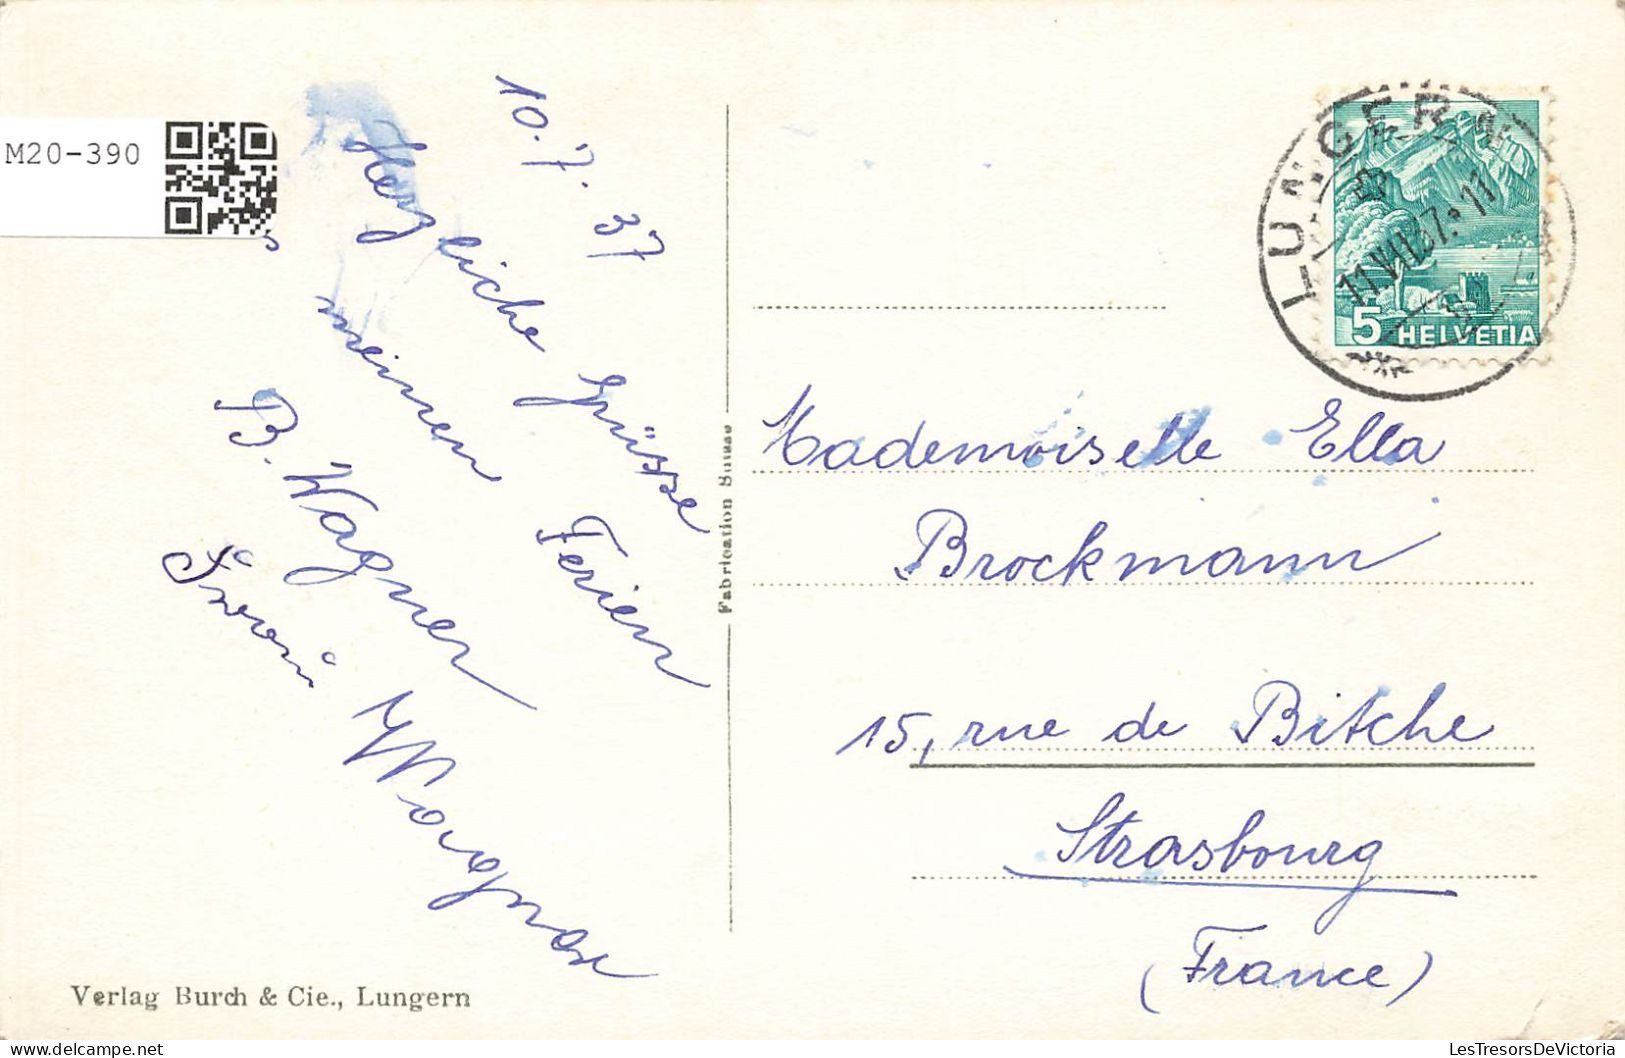 M20-390
10.7.37
Herzliche Grüsse
meinen Ferien
B. Wagner
Wagner
Verlag Burch & Cie., Lungern
Fabrication Suisse
LUNGERN
11.VII.37.11
5 HELVETIA
Mademoiselle Ella
Brockmann
15, rue de Bitche
Strasbourg
(France)
LesTresorsDeVictoria.com